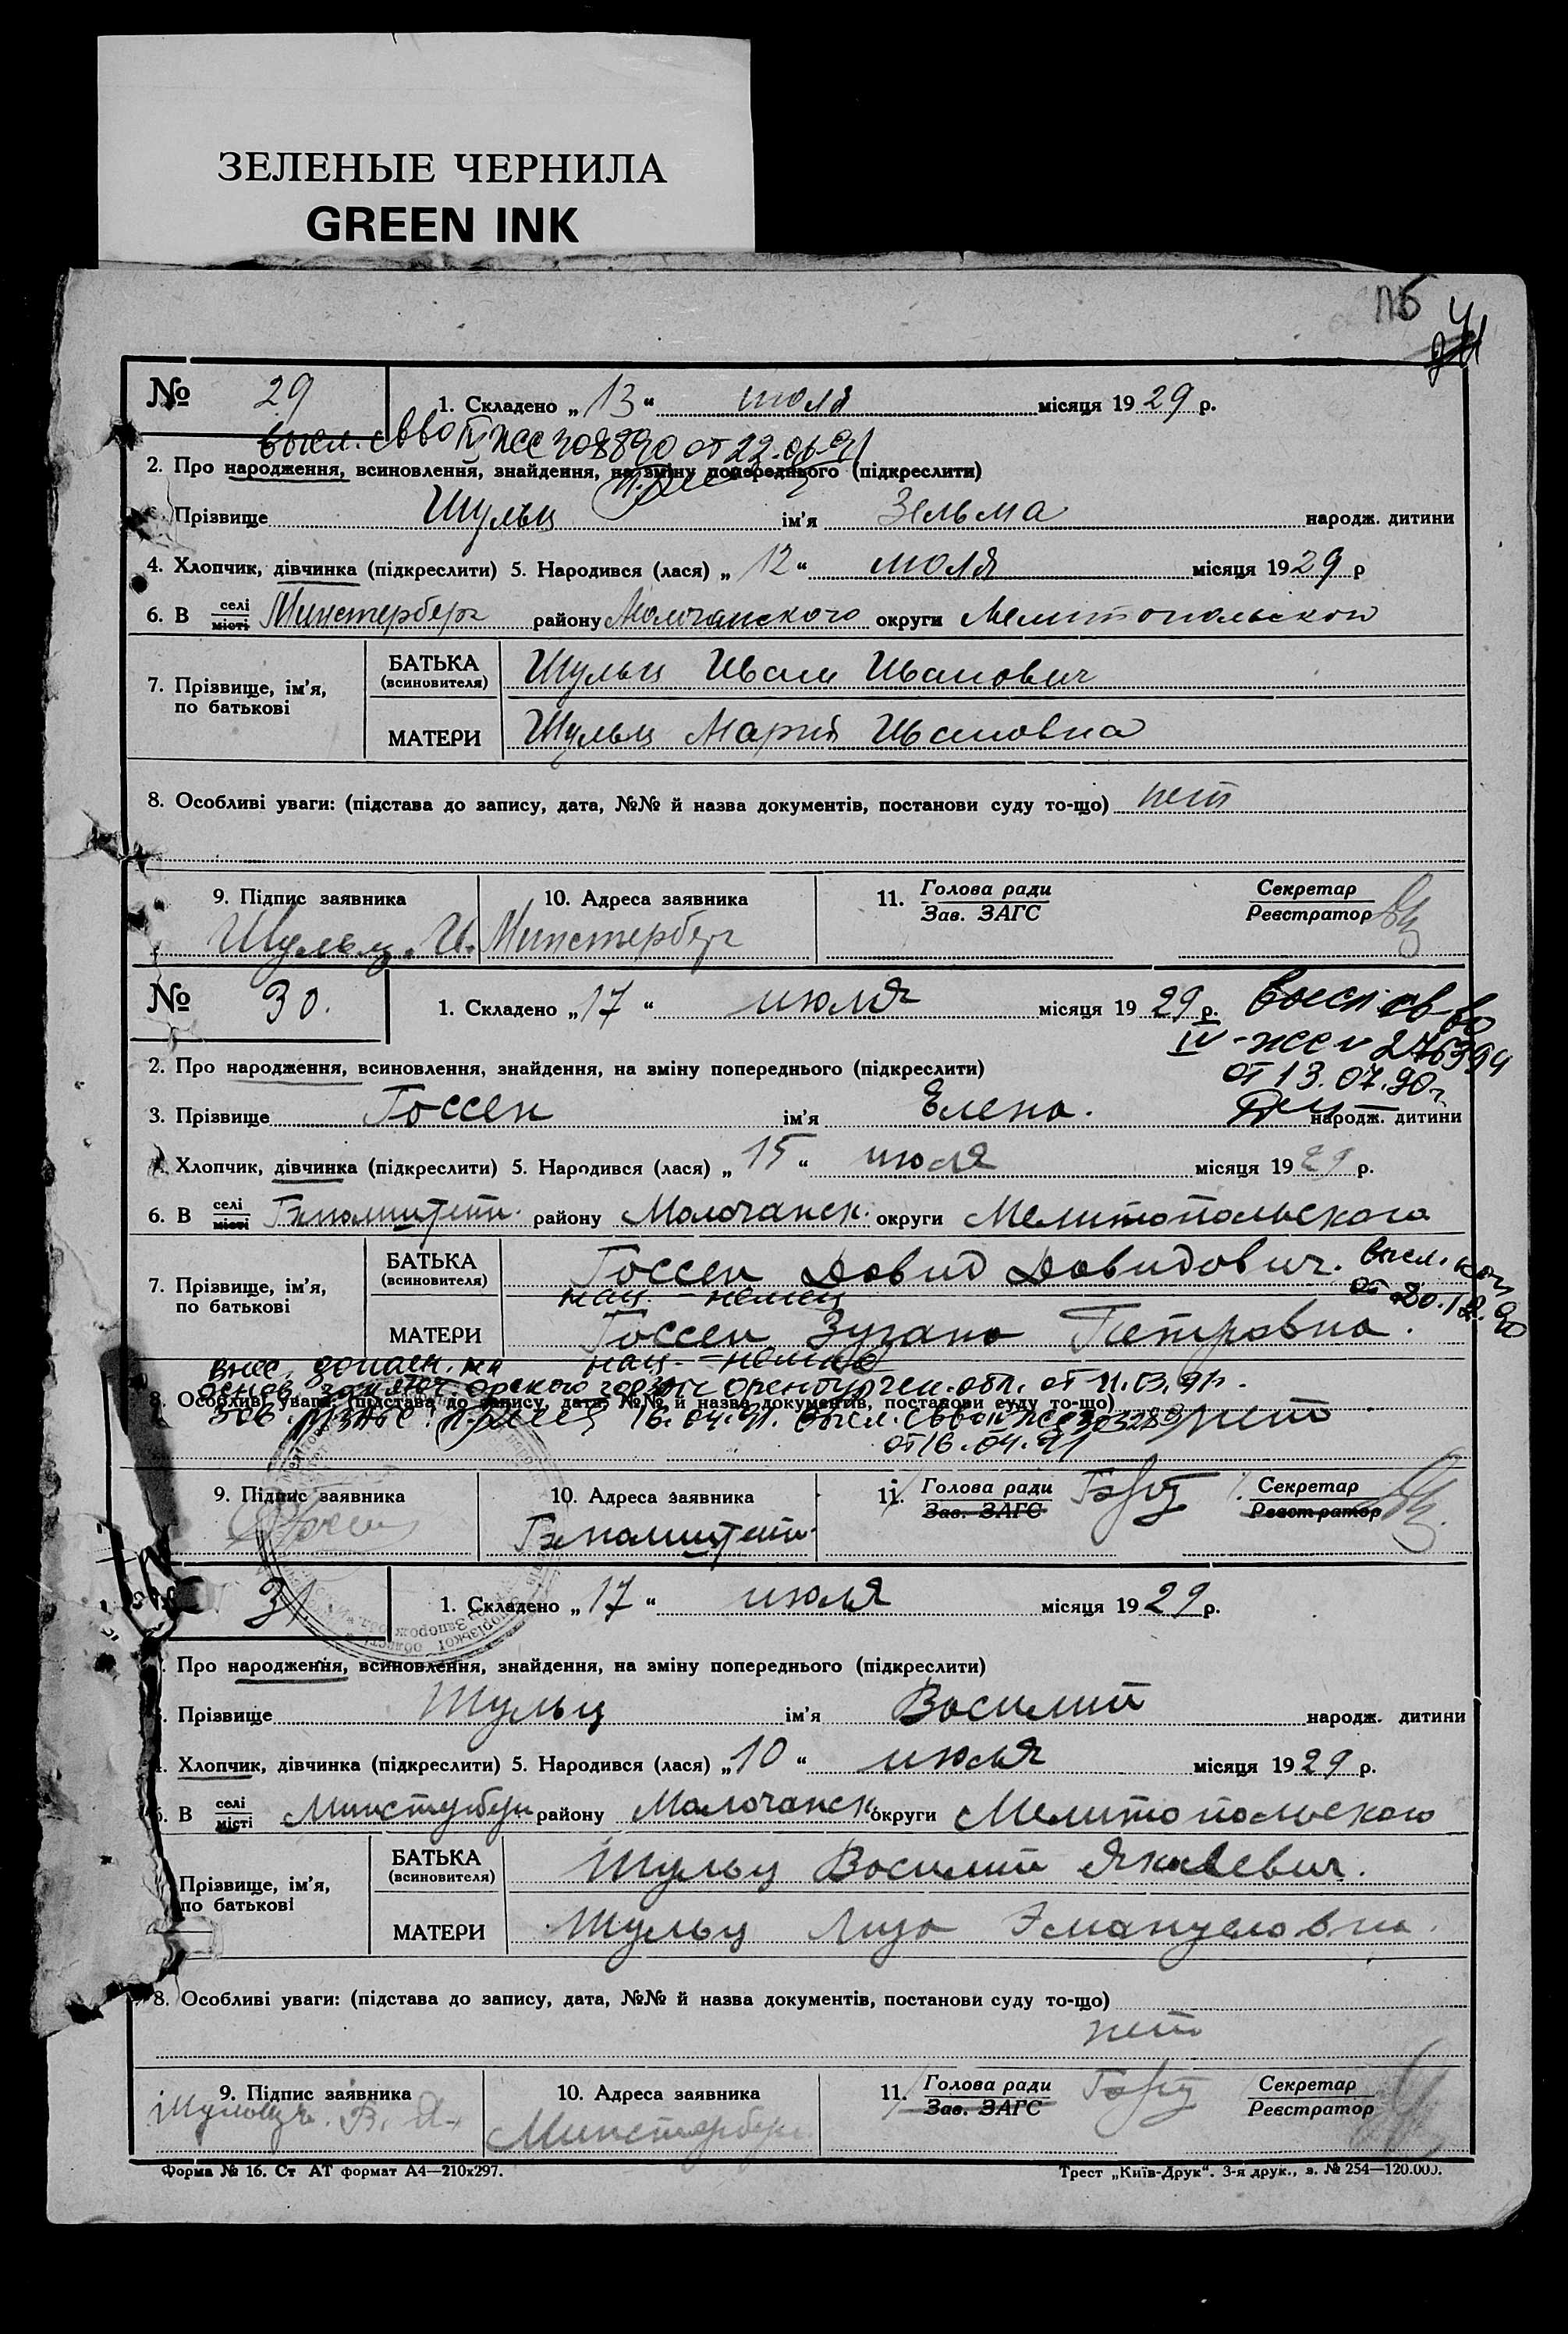 ЗЕЛЕНЫЕ ЧЕРНИЛА
GREEN INK
№ 29
1. Складено „13“ июля місяця 1929 р.
высл. св во IV ЖС 308890 от 22.06.91
2. Про народження, всиновлення, знайдення, на зміну попереднього (підкреслити)
Прізвище Шульц ім'я Зельма народж. дитини
4. Хлопчик, дівчинка (підкреслити) 5. Народився (лася) „12“ июля місяця 1929 р
6. В селі місті Минстерберг району Молочанского округи Мелитопольского
7. Прізвище, ім'я, по батькові
БАТЬКА (всиновителя) Шульц Иван Иванович
МАТЕРИ Шульц Мария Ивановна
8. Особливі уваги: (підстава до запису, дата, №№ й назва документів, постанови суду то-що) нет
9. Підпис заявника 10. Адреса заявника 11. Голова ради Секретар
Зав. ЗАГС Реєстратор
Шульц. И. Минстерберг
№ 30.
1. Складено „17“ июля місяця 1929 р.
высл. св во
IV-ЖС № 276394
от 13.07.90г
2. Про народження, всиновлення, знайдення, на зміну попереднього (підкреслити)
3. Прізвище Госсен ім'я Елена. народж. дитини
Хлопчик, дівчинка (підкреслити) 5. Народився (лася) „15“ июля місяця 1929 р.
6. В селі місті району Молочанск. округи Мелитопольского
7. Прізвище, ім'я, по батькові
БАТЬКА (всиновителя) Госсен Давид Давидович.
высл.
от 20.12.90
нац. – немец
МАТЕРИ Госсен Зузана Петровна.
нац. – немка
внес. дополн. на
основ. заключ. орского горзагс оренбургск. обл. от 11.03.91г.
8. Особливі уваги: (підстава до запису, дата, №№ й назва документів, постанови суду то-що) нет
16.04.91. высл. св во IV ЖС 303289
от 16.04.91
9. Підпис заявника 10. Адреса заявника 11. Голова ради Секретар
Зав. ЗАГС Реєстратор
31
1. Складено „17“ июля місяця 1929 р.
Про народження, всиновлення, знайдення, на зміну попереднього (підкреслити)
Прізвище Шульц ім'я Василий народж. дитини
Хлопчик, дівчинка (підкреслити) 5. Народився (лася) „10“ июля місяця 1929 р.
В селі місті Минстерберг району Молочанск. округи Мелитопольского
Прізвище, ім'я, по батькові
БАТЬКА (всиновителя) Шульц Василий Яковлевич.
МАТЕРИ Шульц Лиза Эмануеловна.
8. Особливі уваги: (підстава до запису, дата, №№ й назва документів, постанови суду то-що)
нет
9. Підпис заявника 10. Адреса заявника 11. Голова ради Секретар
Зав. ЗАГС Реєстратор
Шульц. В. Я. Минстерберг
Форма № 16. Ст АТ формат А4—210х297.
Трест „Київ-Друк“. 3-я друк., з. № 254—120.000.